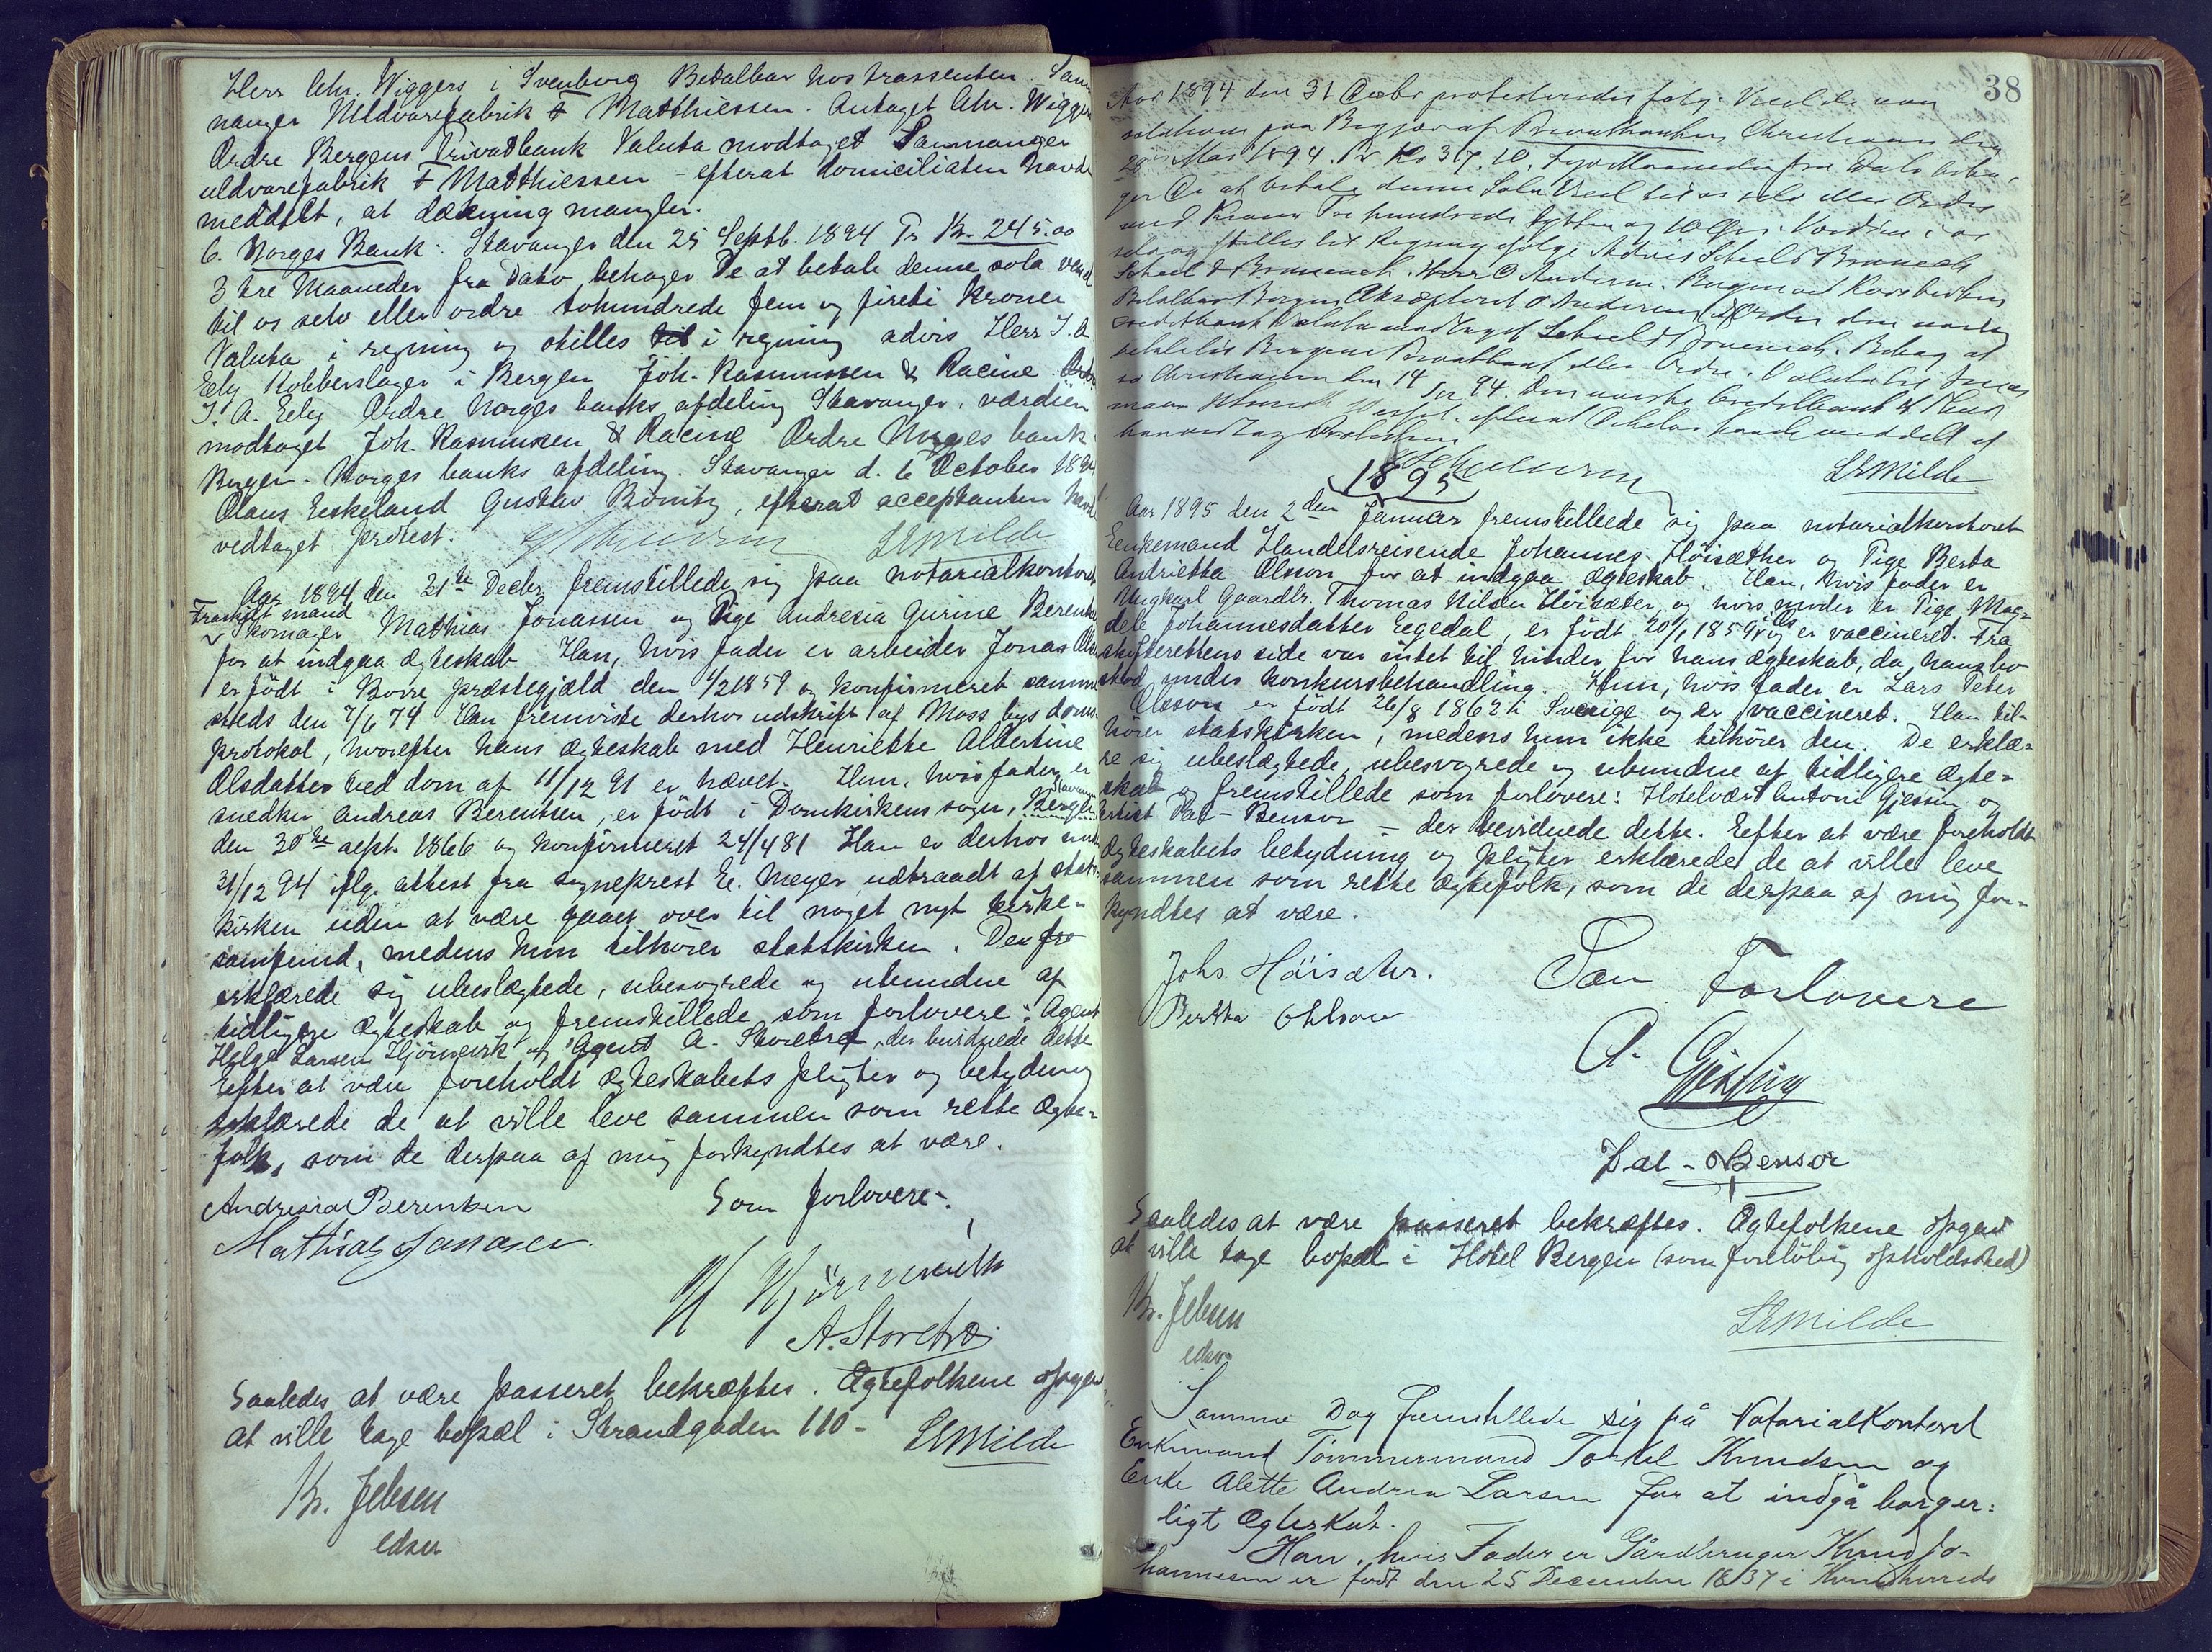 Herr Chr. Wiggers i Svenborg Betalbar hos trassenten. Sam
nanger Uldvarefabrik & Matthiessen. Antaget Chr. Wiggers
Ordre Bergens Privatbank Valuta modtaget Samnanger
uldvarefabrik & Matthiessen - efterat domiciliaten havde
meddelt, at dækning mangler.
6. Norges Bank: Stavanger den 25 Septb. 1894 Pr Kr. 245.00
3 tre Maaneder fra Dato behager De at betale denne sola vexel
til os selv eller ordre tohundrede fem og fireti Kroner
Valuta i regning og stilles i regning advis Herr J. A.
Eeg Kobberslager i Bergen Joh. Rasmussen & Racine
J. A. Eeg Ordre Norges banks afdeling Stavanger, værdien
modtaget Joh. Rasmussen & Racine Ordre Norges bank
Bergen. Norges banks afdeling. Stavanger d. 6 October 1894
Claus Eeskeland Gustav Bönitz, efterat acceptanten havde
vedtaget protest. LEMilde
Aar 1894 den 21de Decbr. fremstillede sig paa notarialkontoret
Fraskilt mand
Skomager Mathias Jonassen og Pige Andresia Gurine Berentsen
for at indgaa ægteskab. Han, hvis fader er arbeider Jonas Olsen
er født i Borre præstegjæld den 1/2 1859 og konfirmeret samme
steds den 7/6 74 Han fremviste derhos udskrift af Moss bys doms
protokol, hvorefter hans ægteskab med Henriette Albertine
Olsdatter ved dom af 11/12 91 er hævet. Hun, hvis fader er
snedker Andreas Berentsen, er født i Domkirkens sogn, Bergen Stavanger
den 30te sept. 1866 og konfirmeret 24/4 81 Han er derhos under
31/12 94 iflg. attest fra sogneprest E. Meyer udtraadt af stats-
kirken uden at være gaaet over til noget nyt kirke-
samfund, medens hun tilhører statskirken. De
erklærede sig ubeslægtede, ubesvogrede og ubundne af
tidligere ægteskab og fremstillede som forlovere: Agent
Helge Larsen Hjörnevik og Agent A. Storetræ, der bevidnede dette
Efter at være foreholdt ægteskabets pligter og betydning
erklærede de at ville leve sammen som rette ægte-
folk, som de derpaa af mig forkyndtes at være.
Andresia Berentsen Som forlovere:
Mathias Jonasen
H Hjörnevik
A. Storetræ
Saaledes at være passeret bekræftes. Ægtefolkene opgav
at ville tage bopæl i Strandgaden 110 - LEMilde
Kr. Jebsen
edsv
38
Aar 1894 den 31 Decbr protesteredes følg. Vexel de non
solutione paa Begjær af Privatbanken Christiania den
20 Mai 1894. Pr Kr 317.10. Fyr Maaneder fra Dato beha-
ger De at betale denne Sola Vexel til os selv eller Ordre
med Kroner Tre hundrede sytten og 10 Øre. Værdien i os
selv og stilles til Regning ifølge Advis Scheel & Branch
Scheel & Branch. Herr O Andersen. Bergen
Betalbar Bergen Aksepteret O Andersen Ordre den norske
creditbank Valuta modtaget Scheel & Branch. Behag at
betale til Bergens Privatbank eller Ordre. Valuta
Christiania den 14 94. Den norske Creditbank
efterat havde meddelt at
han vedtog Protesten
LEMilde
1895
Aar 1895 den 2den Januar fremstillede sig paa notarialkontoret
Enkemand Handelsreisende Johannes Höisæther og Pige Berta
Andrietta Olsson for at indgaa ægteskab. Han, hvis fader er
Ungkarl Gaardbr. Thomas Nilsen Höisæter, og hvis moder er Pige Mag-
dele Johannesdatter Eegedal, er födt 20/1 1859 og er vaccineret. Fra
skifterettens side var intet til hinder for hans ægteskab, da hans bo
stod under konkursbehandling. Hun, hvis fader er Lars Peter
Olsson er født 26/8 1862 i Sverige og er vaccineret. Han til-
hører statskirken, medens hun ikke tilhører den. De erklæ-
re sig ubeslægtede, ubesvogrede og ubundne af tidligere ægte-
skab og fremstillede som forlovere: Hotelvært Antoni Gjessing og
artist Dal-Bensor - der bevidnede dette. Eefter at være foreholdt
Ægteskabets betydning og pligter erklærede de at ville leve
sammen som rette ægtefolk, som de derpaa af mig for-
kyndtes at være.
Johs. Höisæter. Som Forlovere
Bertha Ohlson
A. Gjessing
Dal-Bensor
Saaledes at være passeret bekræftes. Ægtefolkene opgav
at ville tage bopæl i Hotel Bergen (som foreløbig opholdssted)
Kr. Jebsen LEMilde
edsv
Samme Dag fremstillede sig på NotarialKontoret
Enkemand Tömmermand Torkel Knudsen og
Enke Alette Andrea Larsen for at indgå borger:
ligt Ægteskab.
Han, hvis Fader er Gårdbruger Knud Jo-
hannesen er født den 25 December 1837 i Kvindherreds